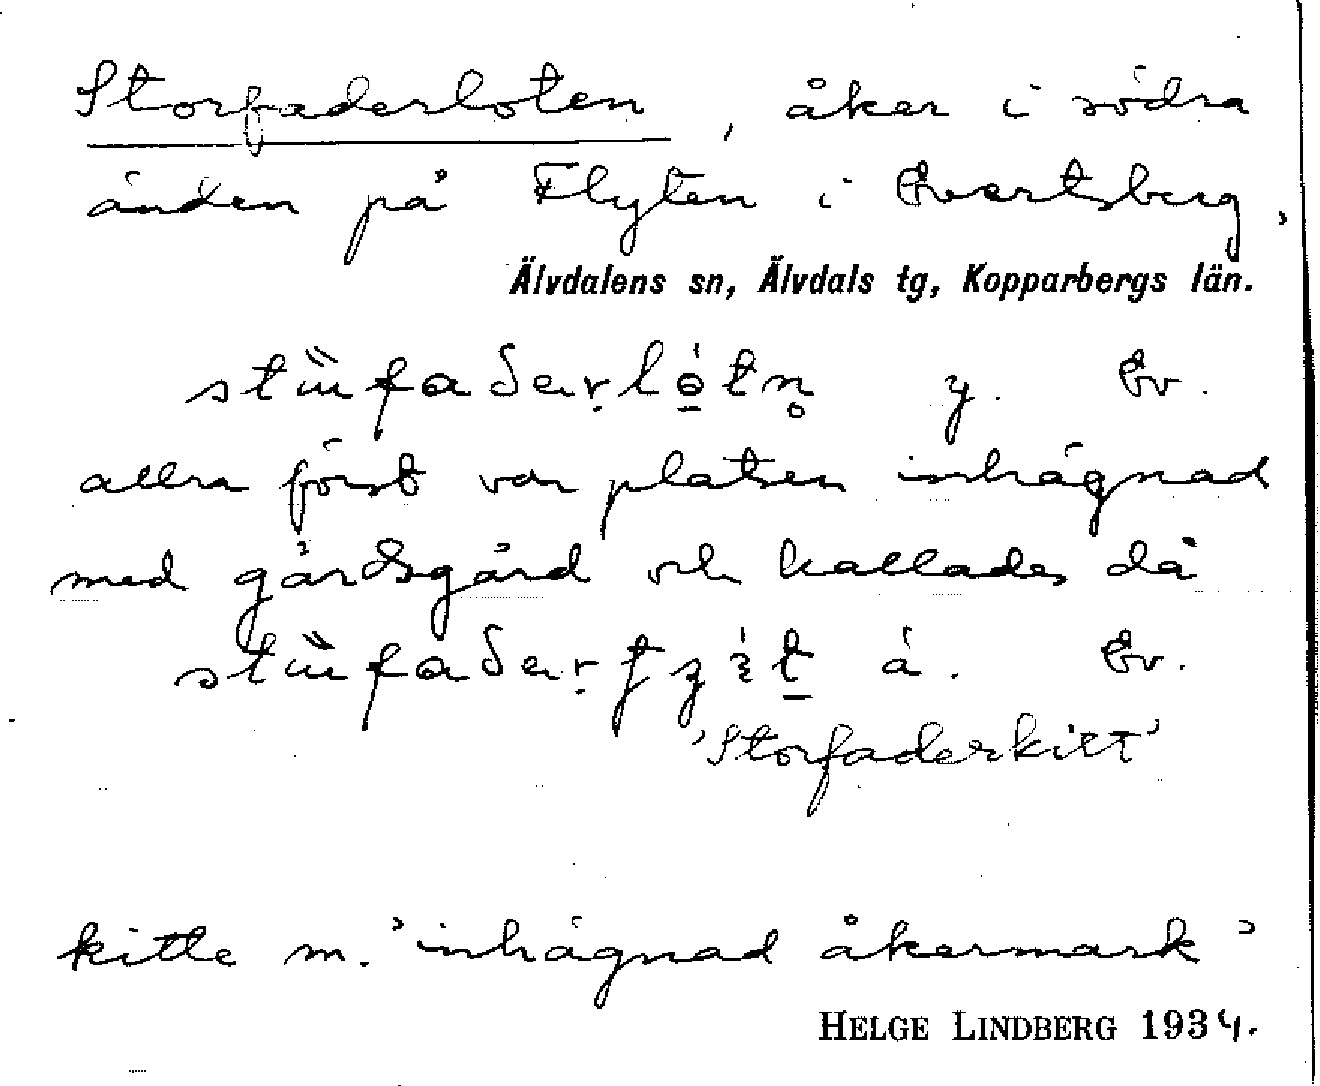 Storfaderloten, åker i södra
änden på Flyten i Evertsberg,
Älvdalens sn, Älvdals tg, Kopparbergs län.
y. Ev.
allra först var platsen inhägnad
med gärdsgård och kallades då
á. Ev.
'Storfaderkitt'
kitte m. 'inhägnad åkermark'
HELGE LINDBERG 1934.